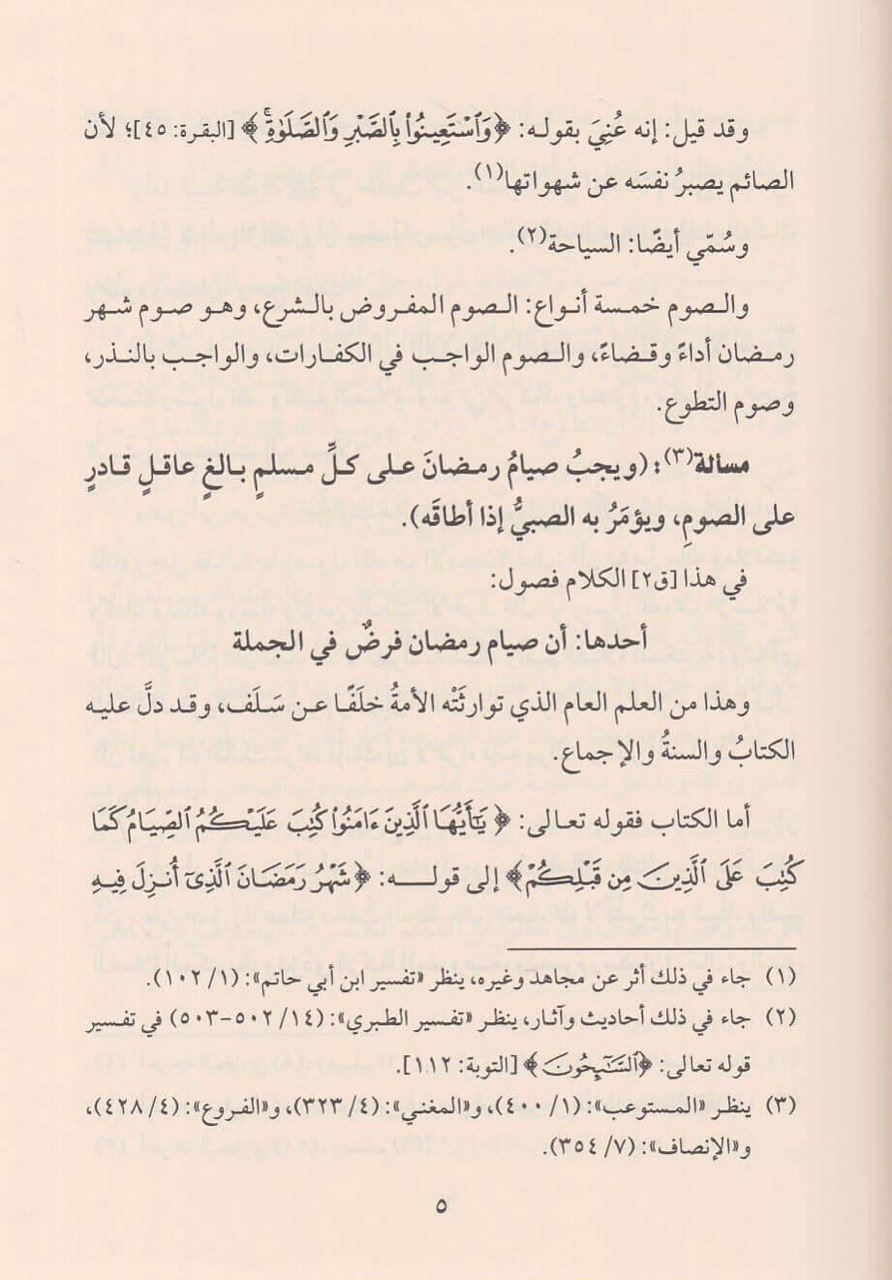 وقد قيل: إنه عُنِيَ بقوله: ﴿وَٱسْتَعِينُوا۟ بِٱلصَّبْرِ وَٱلصَّلَوٰةِ ۚ﴾ [البقرة: ٤٥]؛ لأن
الصائم يصبرُ نفسَه عن شهواتها(١).
وسُمّي أيضًا: السياحة(٢).
والصوم خمسة أنواع: الصوم المفروض بالشرع، وهو صوم شهر
رمضان أداءً وقضاءً، والصوم الواجب في الكفارات، والواجب بالنذر،
وصوم التطوع.
مسالة(٣): (ويجبُ صيامُ رمضانَ على كلِّ مسلمٍ بالغٍ عاقلٍ قادرٍ
على الصومِ، ويؤمَرُ به الصبيُّ إذا أطاقَه).
في هذا [ق٢] الكلام فصول:
أحدها: أن صيام رمضان فرضٌ في الجملة
وهذا من العلم العام الذي توارثَتْه الأمةُ خلَفًا عن سَلَف، وقد دلَّ عليه
الكتابُ والسنةُ والإجماع.
أما الكتاب فقوله تعالى: ﴿يَـٰٓأَيُّهَا ٱلَّذِينَ ءَامَنُوا۟ كُتِبَ عَلَيْكُمُ ٱلصِّيَامُ كَمَا
كُتِبَ عَلَى ٱلَّذِينَ مِن قَبْلِكُمْ﴾ إلى قوله: ﴿شَهْرُ رَمَضَانَ ٱلَّذِىٓ أُنزِلَ فِيهِ
(١) جاء في ذلك أثر عن مجاهد وغيره، ينظر «تفسير ابن أبي حاتم»: (١/ ١٠٢).
(٢) جاء في ذلك أحاديث وآثار، ينظر «تفسير الطبري»: (١٤/ ٥٠٢-٥٠٣) في تفسير
قوله تعالى: ﴿ٱلسَّـٰٓئِحُونَ﴾ [التوبة: ١١٢].
(٣) ينظر «المستوعب»: (١/ ٤٠٠)، و«المغني»: (٤/ ٣٢٣)، و«الفروع»: (٤/ ٤٢٨)،
و«الإنصاف»: (٧/ ٣٥٤).
٥